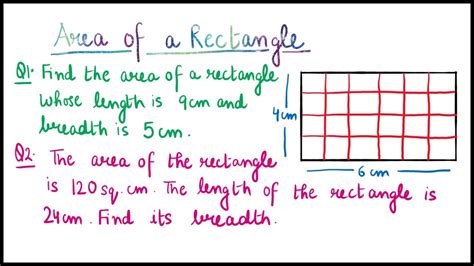 Area of a Rectangle
Q1. Find the area of a rectangle
whose length is 9cm and
breadth is 5cm.
4cm
6cm
Q2. The area of the rectangle
is 120 sq. cm. The length of the rectangle is
24cm. Find its breadth.